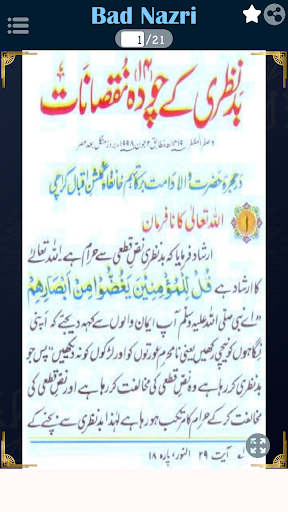 Bad Nazri
1 /21
بدنظری کے چودہ (۱۴) نقصانات
در حجرۂ حضرت والا دامت برکاتہم خانقاہ گلشن اقبال کراچی
۱ اللہ تعالیٰ کا نافرمان
ارشاد فرمایا کہ بدنظری نص قطعی سے حرام ہے۔ اللہ تعالیٰ
کا ارشاد ہے قُلْ لِلْمُؤْمِنِیْنَ یَغُضُّوْا مِنْ اَبْصَارِهِمْ
اے نبی صلی اللہ علیہ وسلم آپ ایمان والوں سے کہہ دیجئے کہ اپنی
نگاہوں کو نیچی رکھیں یعنی نامحرم عورتوں کو اور لڑکوں کو نہ دیکھیں" پس جو
بدنظری کر رہا ہے وہ نص قطعی کی مخالفت کر رہا ہے اور نص قطعی کی
مخالفت کر کے حرام کا مرتکب ہو رہا ہے لہٰذا بدنظری سے بچنے کے
آیت ۲۹ النور، پارہ ۱۸